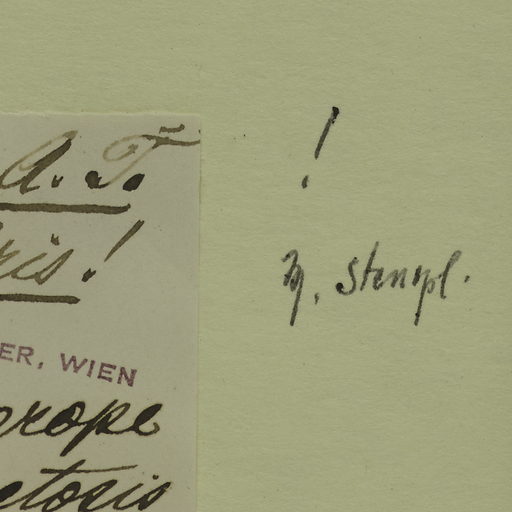 A. T.
ris!
ER, WIEN
rope
etosis
!
M. Stempl.